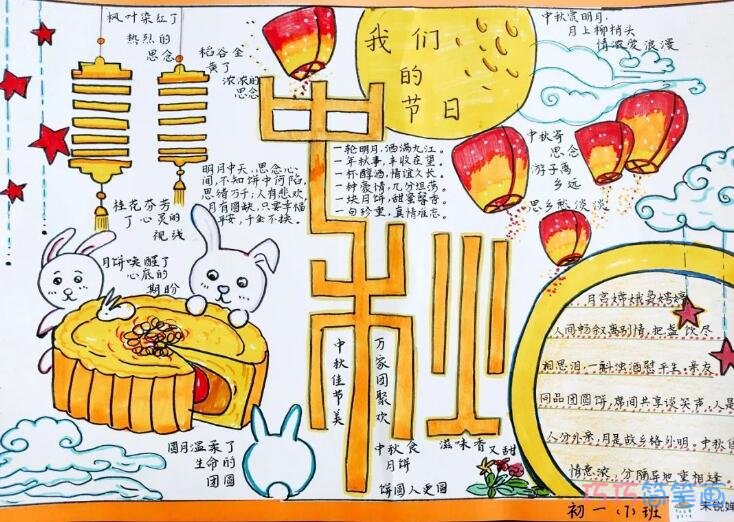 枫叶染红了
热烈的
思念
稻谷金
黄了
浓浓的
思念
我们
的
节日
中秋赏明月，
月上柳梢头
情浓爱浪漫
中秋
一轮明月，洒满九江。
一年秋事，丰收在望。
一杯醇酒，情谊久长。
一种豪情，几分坦荡。
一块月饼，甜蜜馨香。
一句珍重，真情难忘。
明月中天，思念心
间，不知饼中何陷，
思绪万千；人有悲欢
月有圆缺，只要幸福
平安，千金不换。
中秋寄
思念
游子离
乡远
思乡愁淡淡
桂花芬芳
了心灵的
视线
月饼唤醒了
心底的
期盼
中秋佳节美
万家团聚欢
月宫嫦娥
人间畅叙离别情，把盏饮尽
相思泪，一斛浊酒慰平生。亲友
同品团圆饼，席间共享谈笑声。人是
人分外亲，月是故乡格外明。中秋佳
情意浓，
圆月温柔了
生命的
团圆
中秋食
月饼
滋味香又甜
饼圆人更圆
初一(1)班
巧巧简笔画